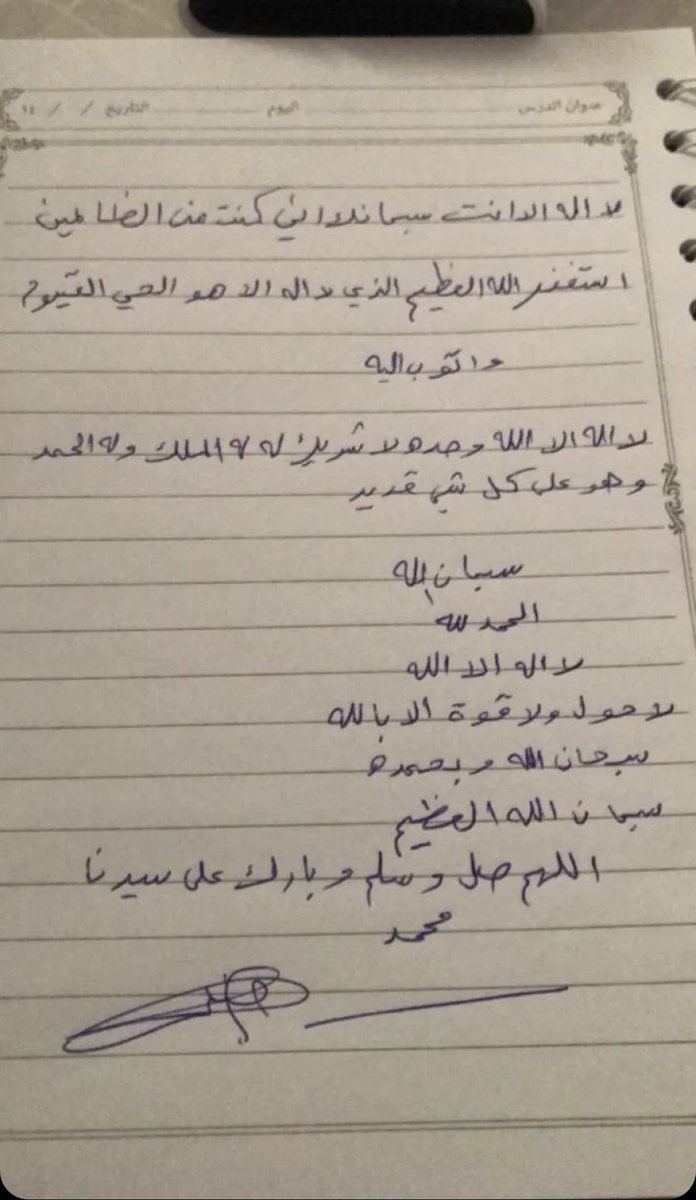 عنوان الدرس اليوم التاريخ / / ١٤
لا اله الا انت سبحانك اني كنت من الظالمين
استغفر الله العظيم الذي لا اله الا هو الحي القيوم
واتوب اليه
لا اله الا الله وحده لا شريك له له الملك وله الحمد
وهو على كل شي قدير
سبحان الله
الحمد لله
لا اله الا الله
لا حول ولا قوة الا بالله
سبحان الله وبحمده
سبحان الله العظيم
اللهم صل وسلم وبارك على سيدنا
محمد